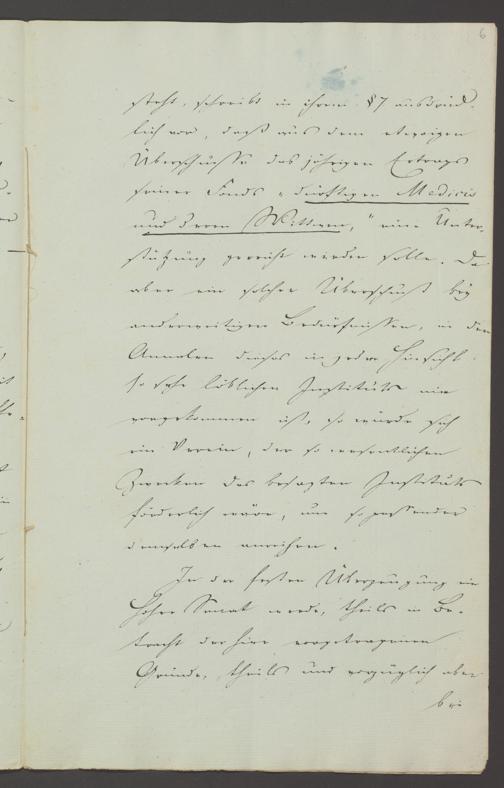 6
steht, schreibt in ihrem §7 ausdrück-
lich vor, daß aus dem etwaigen
Überschusse des jährigen Ertrags
seiner Fonds „dürftigen Medicis
und deren Wittwen," eine Unter-
stützung gereicht werden solle. Da
aber ein solcher Überschuß bey
anderweitigen Bedürfnissen, in den
Annalen dieses in jeder Hinsicht
so sehr löblichen Instituts nie
vorgekommen ist, so würde sich
ein Verein, der so wesentlichen
Zwecken des besagten Instituts
förderlich wäre, um so passender
demselben anreihen.
In der festen Überzeugung ein
Hoher Senat werde, theils in Be-
tracht der hier vorgetragenen
Gründe, theils und vorzüglich aber
bei